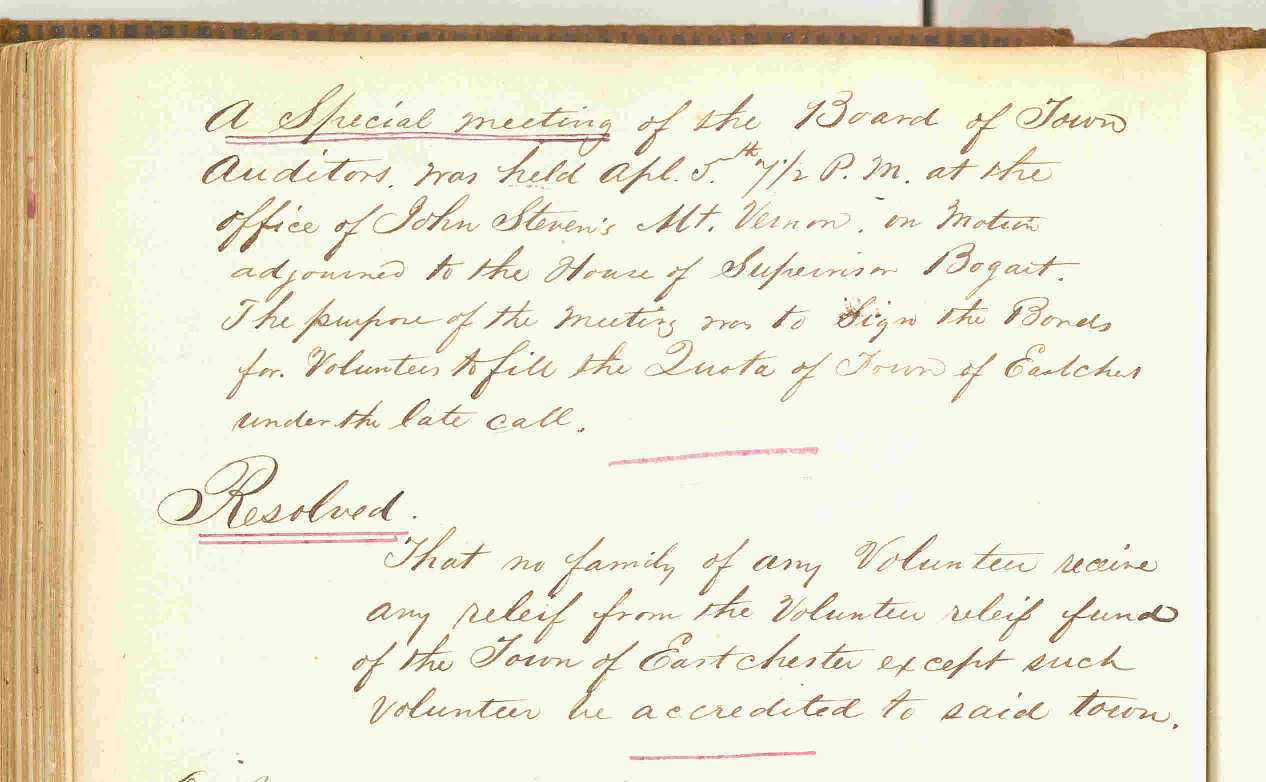 A Special meeting of the Board of Town
Auditors. was held Apl. 5.th 7 1/2 P. M. at the
office of John Steven's Mt. Vernon. on Motion
adjourned to the House of Supervisor Bogart.
The purpose of the Meeting was to Sign the Bonds
for. Volunteers to fill the Quota of Town of Eastchest
under the late call.
Resolved.
That no family of any Volunteer receive
any releif from the Volunteer releif fund
of the Town of Eastchester except such
Volunteer be accredited to said town.